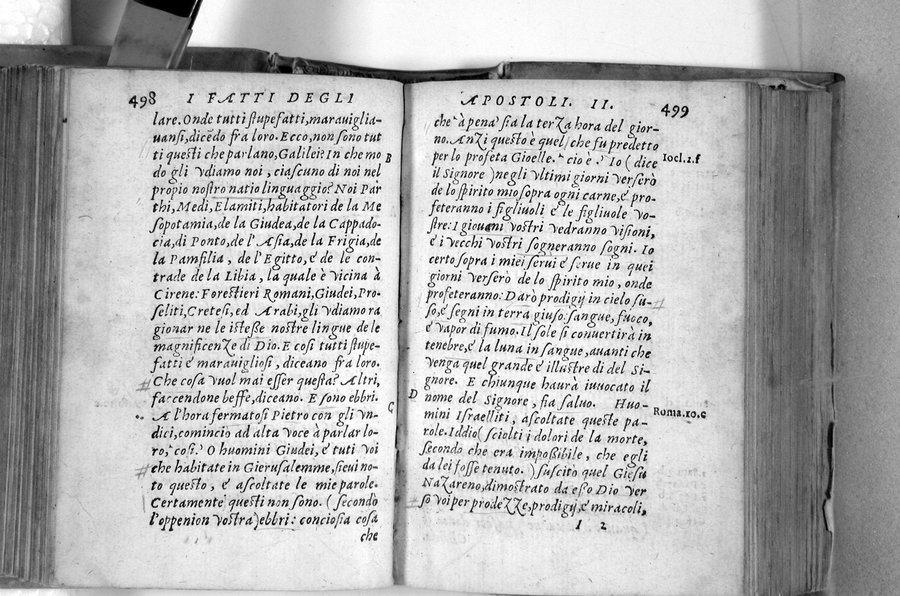 498 I FATTI DEGLI
lare. Onde tutti stupefatti, marauiglia-
uansi, dicẽdo fra loro. Ecco, non sono tut
ti questi che parlano, Galilei? In che mo
do gli vdiamo noi, ciascuno di noi nel
propio nostro natio linguaggio? Noi Par
thi, Medi, Elamiti, habitatori de la Me
sopotamia, de la Giudea, de la Cappado-
cia, di Ponto, de l' Asia, de la Frigia, de
la Pamfilia, de l'Egitto, e de le con-
trade de la Libia, la quale è vicina à
Cirene: Forestieri Romani, Giudei, Pro-
seliti, Cretesi, ed Arabi, gli vdiamo ra
gionar ne le istesse nostre lingue de le
magnificenze di Dio. E cosi tutti stupe-
fatti e marauigliosi, diceano fra loro.
Che cosa vuol mai esser questa? Altri,
faccendone beffe, diceano. E sono ebbri.
A l'hora fermatosi Pietro con gli vn-
dici, comincio ad alta voce à parlar lo-
ro, cosi. O huomini Giudei, e tuti voi
che habitate in Gierusalemme, sieui no-
to questo, e ascoltate le mie parole.
Certamente questi non sono. (secondo
l'oppenion vostra) ebbri: conciosia cosa
che
B
C
APOSTOLI. II. 499
che à pena sia la terza hora del gior-
no. Anzi questo è quel che fu predetto
per lo profeta Gioelle. cio è? Io (dice
il Signore) negli vltimi giorni verserò
de lo spirito mio sopra ogni carne, e pro-
feteranno i figliuoli e le figliuole vo-
stre: I giouani vostri vedranno visioni,
e i vecchi vostri sogneranno sogni. Io
certo sopra i miei serui e serue in quei
giorni verserò de lo spirito mio, onde
profeteranno: Darò prodigij in cielo su-
so, e segni in terra giuso: sangue, fuoco,
e vapor di fumo. Il sole si conuertirà in
tenebre, e la luna in sangue, auanti che
venga quel grande e illustre dì del Si-
gnore. E chiunque haurà iuuocato il
nome del Signore, sia saluo. Huo-
mini Israelliti, ascoltate queste pa-
role. Iddio (sciolti i dolori de la morte,
secondo che era impossibile, che egli
da lei fosse tenuto.) suscito quel Giesu
Nazareno, dimostrato da esso Dio ver
so voi per prodezze, prodigij, e miracoli,
I 2
Iocl.2.f
D
Roma.10.c